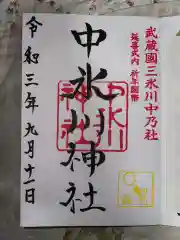 武蔵國三氷川中乃社
延喜式内 祈年国幣
中氷川神社
中氷川
神社
令和三年九月十一日